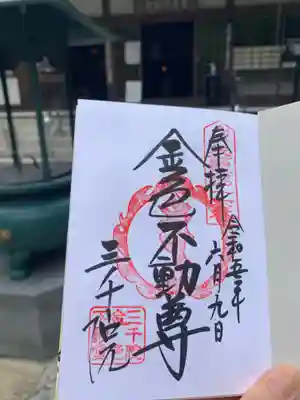 奉拝
令和五年
六月九日
金色不動尊
三千院